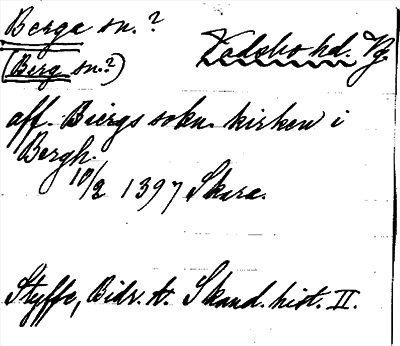 Berga sn.?
(Berg sn.?)
Vadsbo hd. Vg.
aff. Biergs sokn kirken i
Bergh.
10/2 1397 Skara.
Styffe, Bidr. t. Skand. hist. II.